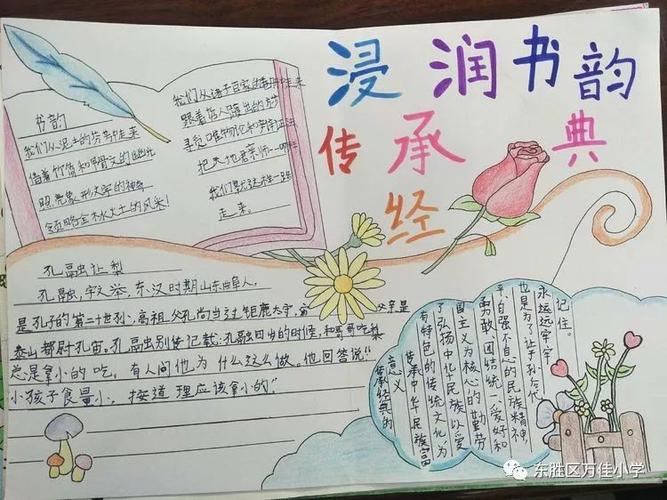 浸润书韵
传承经典
书韵
我们从泥土的芬芳中走来
借着竹简和甲骨文的幽光
照亮象形大学的神奇
领略金木水火土的风采!
我们从诸子百家的中走来
跟着
寻觅唯物论和
把天地君亲师
我们就这样一路
走来。
孔融让梨
孔融,字文举,东汉时期山东曲阜人,
是孔子的第二十世孙,高祖父孔尚当过钜鹿太守,父亲是
泰山都尉孔宙。孔融别传记载:孔融四岁的时候,和哥哥吃梨
总是拿小的吃,有人问他为什么这么做。他回答说“
小孩子食量小,按道理应该拿小的”
传承经典的
意义
传承中华民族富
有特色的传统文化为
了弘扬中华民族以爱
国主义为核心的勤劳
勇敢、团结统一、爱好和
平自强不息的民族精神,
也是为了让子孙后代
永远远牢牢
记住。
东胜区万佳小学